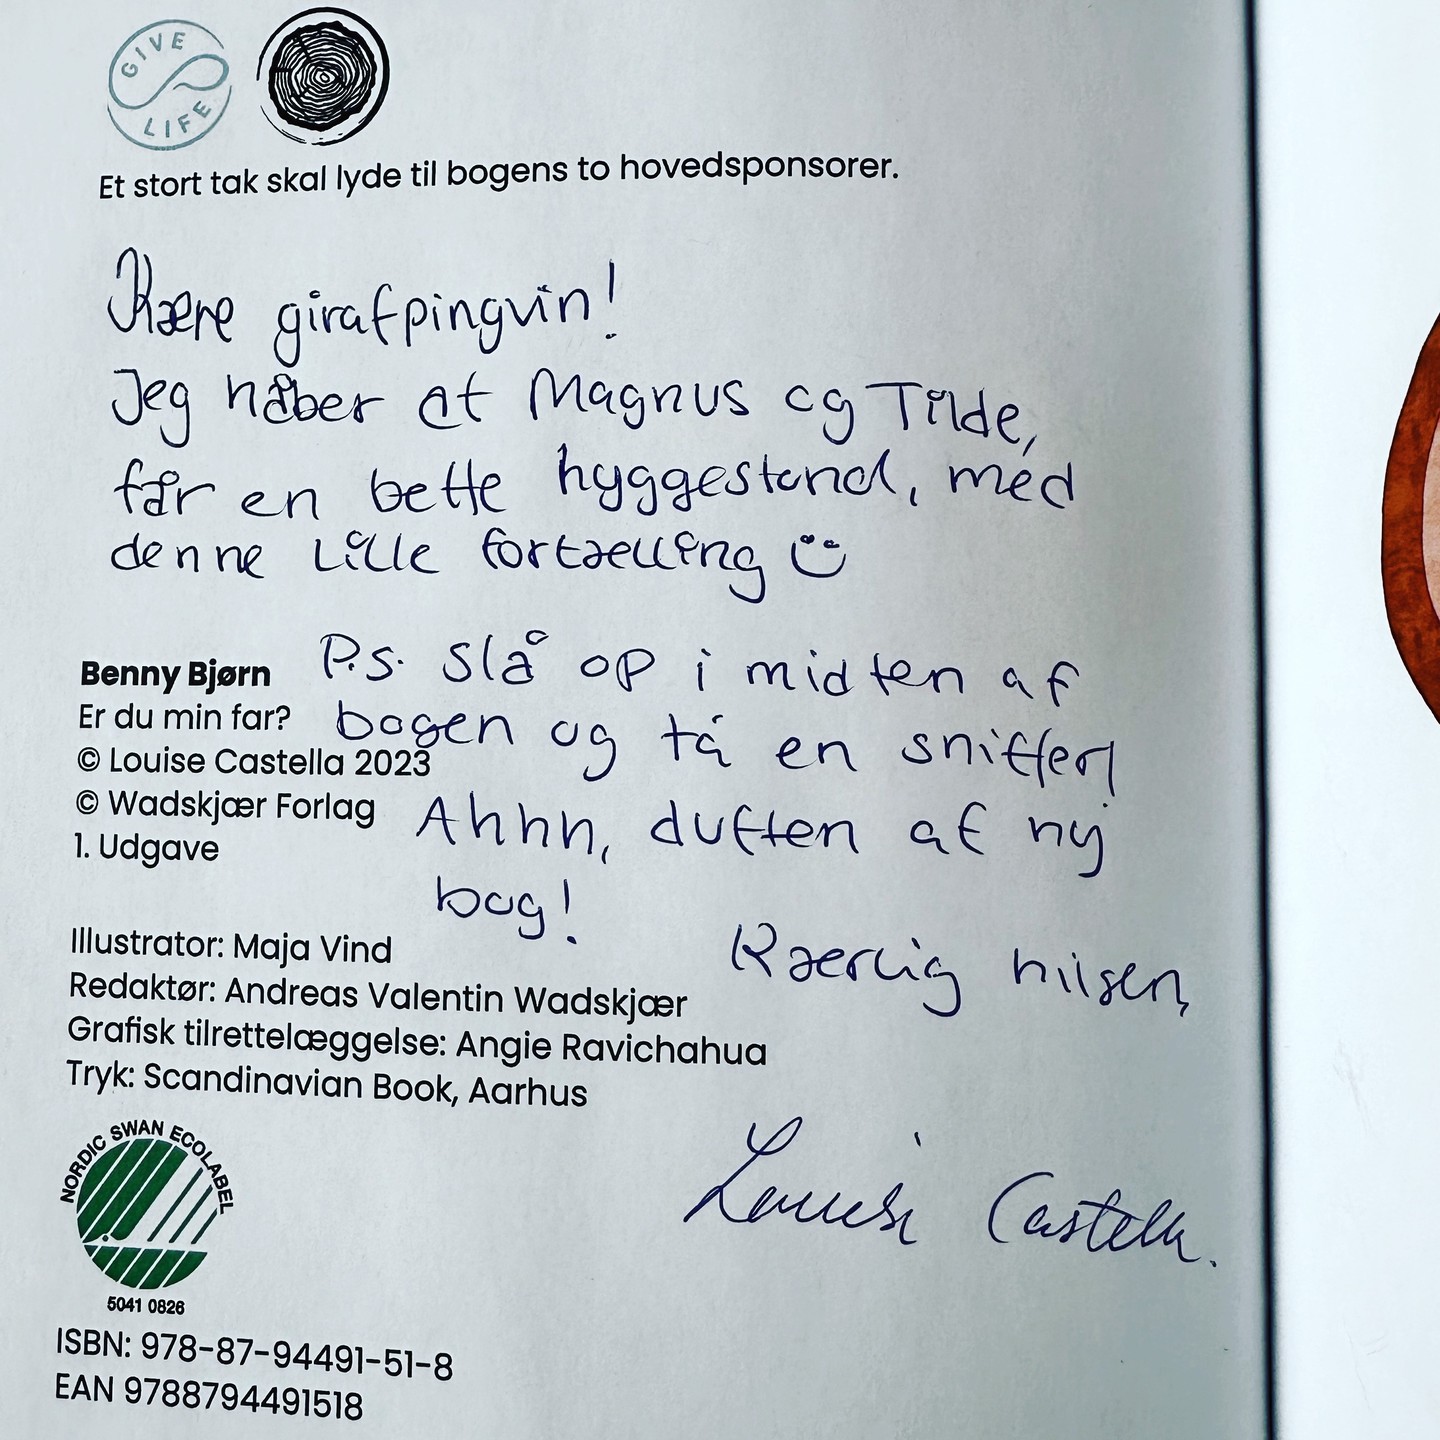 GIVE LIFE
Et stort tak skal lyde til bogens to hovedsponsorer.
Kære girafpingvin!
Jeg håber at Magnus og Tilde,
får en bette hyggestund, med
denne lille fortælling
P.s. Slå op i midten af
bogen og tá en snifter!
Ahhh, duften af ny
bog!
Kærlig hilsen,
Louise Castella.
Benny Bjørn
Er du min far?
© Louise Castella 2023
© Wadskjær Forlag
1. Udgave
Illustrator: Maja Vind
Redaktør: Andreas Valentin Wadskjær
Grafisk tilrettelæggelse: Angie Ravichahua
Tryk: Scandinavian Book, Aarhus
NORDIC SWAN ECOLABEL
5041 0826
ISBN: 978-87-94491-51-8
EAN 9788794491518